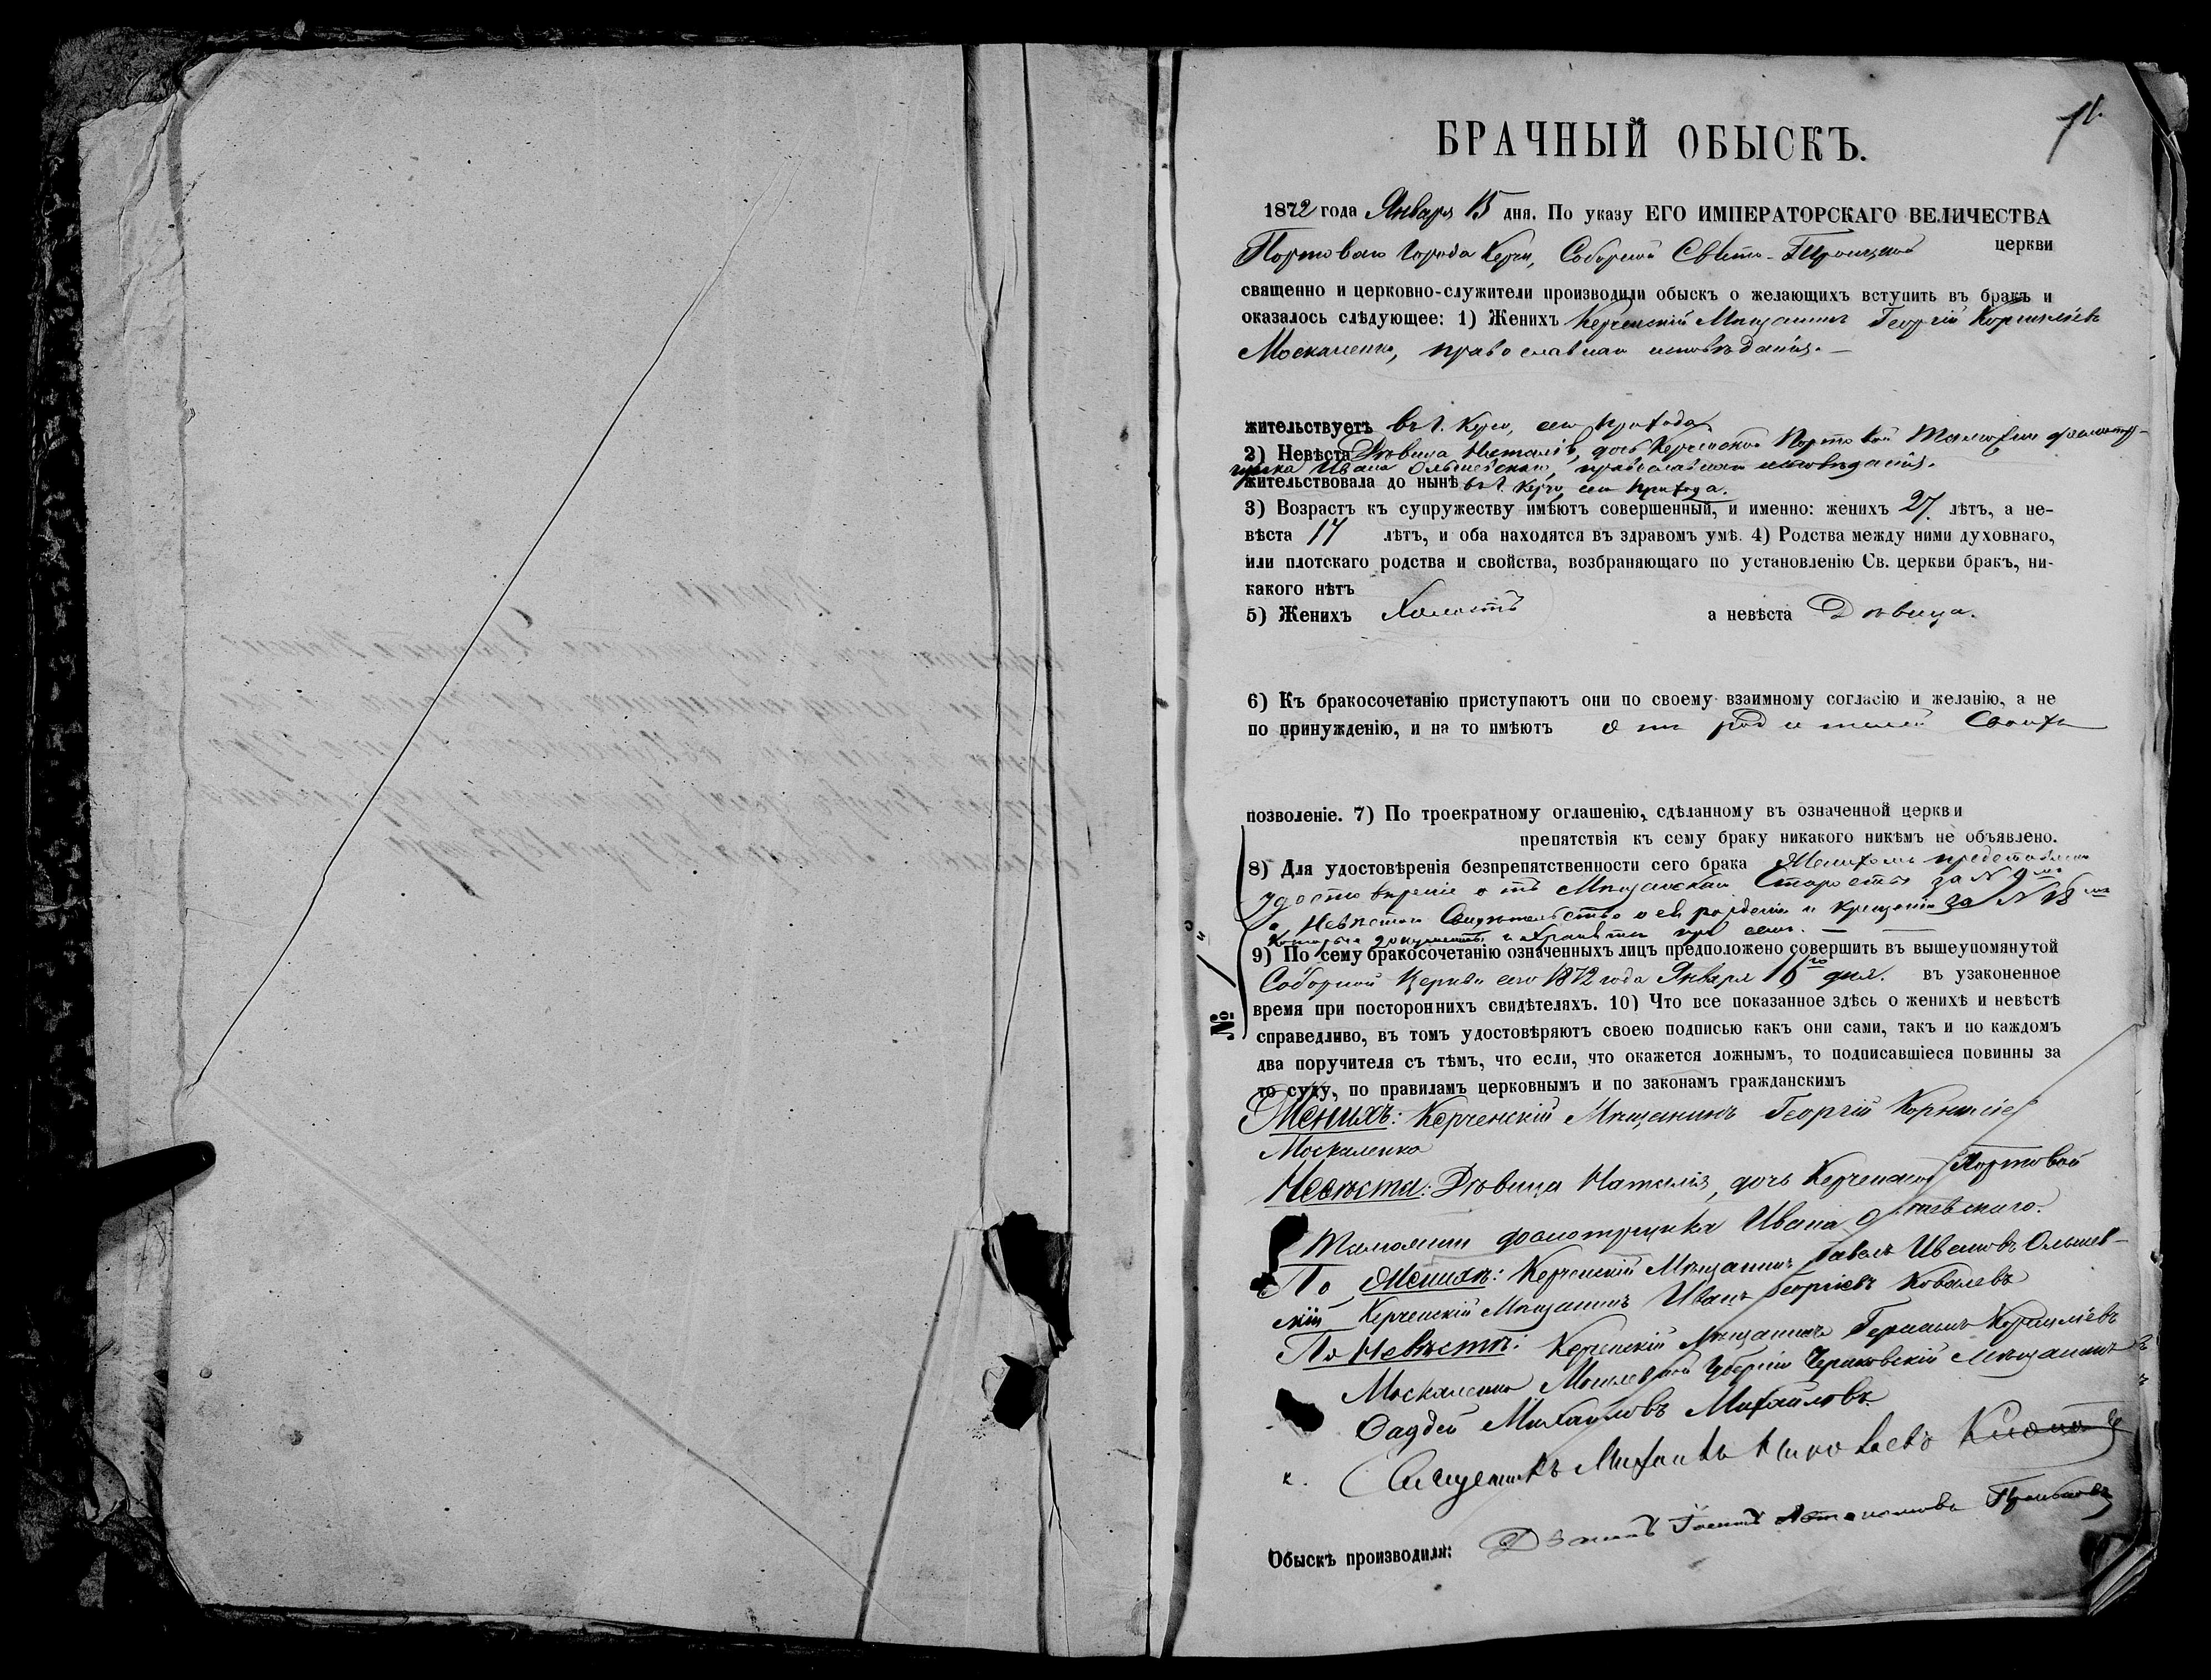 БРАЧНЫЙ ОБЫСКЪ.
1872 года Января 15 дня. По указу ЕГО ИМПЕРАТОРСКАГО ВЕЛИЧЕСТВА
Портоваго города Керчи, Соборной Свято-Троицкой церкви
священно и церковно-служители производили обыскъ о желающихъ вступить въ бракъ и
оказалось слѣдующее: 1) Женихъ Керченскій Мѣщанинъ Георгій Корниліевъ
Москаленко, православнаго исповѣданія.
жительствуетъ въ г. Керчи, сего прихода
2) Невѣста Дѣвица Наталія, дочь Керченской Портовой Таможни
Ивана Ольшевскаго, православнаго исповѣданія.
жительствовала до нынѣ въ г. Керчи, сего прихода.
3) Возрастъ къ супружеству имѣютъ совершенный, и именно: женихъ 27 лѣтъ, а не-
вѣста 17 лѣтъ, и оба находятся въ здравомъ умѣ. 4) Родства между ними духовнаго,
или плотскаго родства и свойства, возбраняющаго по установленію Св. церкви бракъ, ни-
какого нѣтъ
5) Женихъ Холостъ а невѣста Дѣвица.
6) Къ бракосочетанію приступаютъ они по своему взаимному согласію и желанію, а не
по принужденію, и на то имѣютъ отъ родителей своихъ
позволеніе. 7) По троекратному оглашенію, сдѣланному въ означенной церкви
препятствія къ сему браку никакого никѣмъ не объявлено.
8) Для удостовѣренія безпрепятственности сего брака Женихомъ представлено
удостовѣреніе отъ Мѣщанскаго Старосты за №
а Невѣстою Свидѣтельство о ея рожденіи и крещеніи за № 18
которые документы и хранятся при семъ.
9) По сему бракосочетанію означенныхъ лицъ предположено совершить въ вышеупомянутой
Соборной Церкви сего 1872 года Января 16го дня. въ узаконенное
время при постороннихъ свидѣтеляхъ. 10) Что все показанное здѣсь о женихѣ и невѣстѣ
№ 1
справедливо, въ томъ удостовѣряютъ своею подписью какъ они сами, такъ и по каждомъ
два поручителя съ тѣмъ, что если, что окажется ложнымъ, то подписавшіеся повинны за
то суду, по правиламъ церковнымъ и по законамъ гражданскимъ
Женихъ: Керченскій Мѣщанинъ Георгій Корниліев
Москаленко
Невѣста: Дѣвица Наталія, дочь Керченской Портовой
Таможни Ивана
По Женихѣ: Керченскій Мѣщанинъ Павелъ Ивановъ Ольшев-
скій Керченскій Мѣщанинъ Иванъ Георгіевъ Ковалевъ
По Невѣстѣ: Керченскій Мѣщанинъ Герасимъ Корниліевъ
Москаленко Могилевской Губерніи Чериковскій Мѣщанинъ
Фаддей Михайловъ Михайловъ
Священникъ Михаилъ
Обыскъ производили: